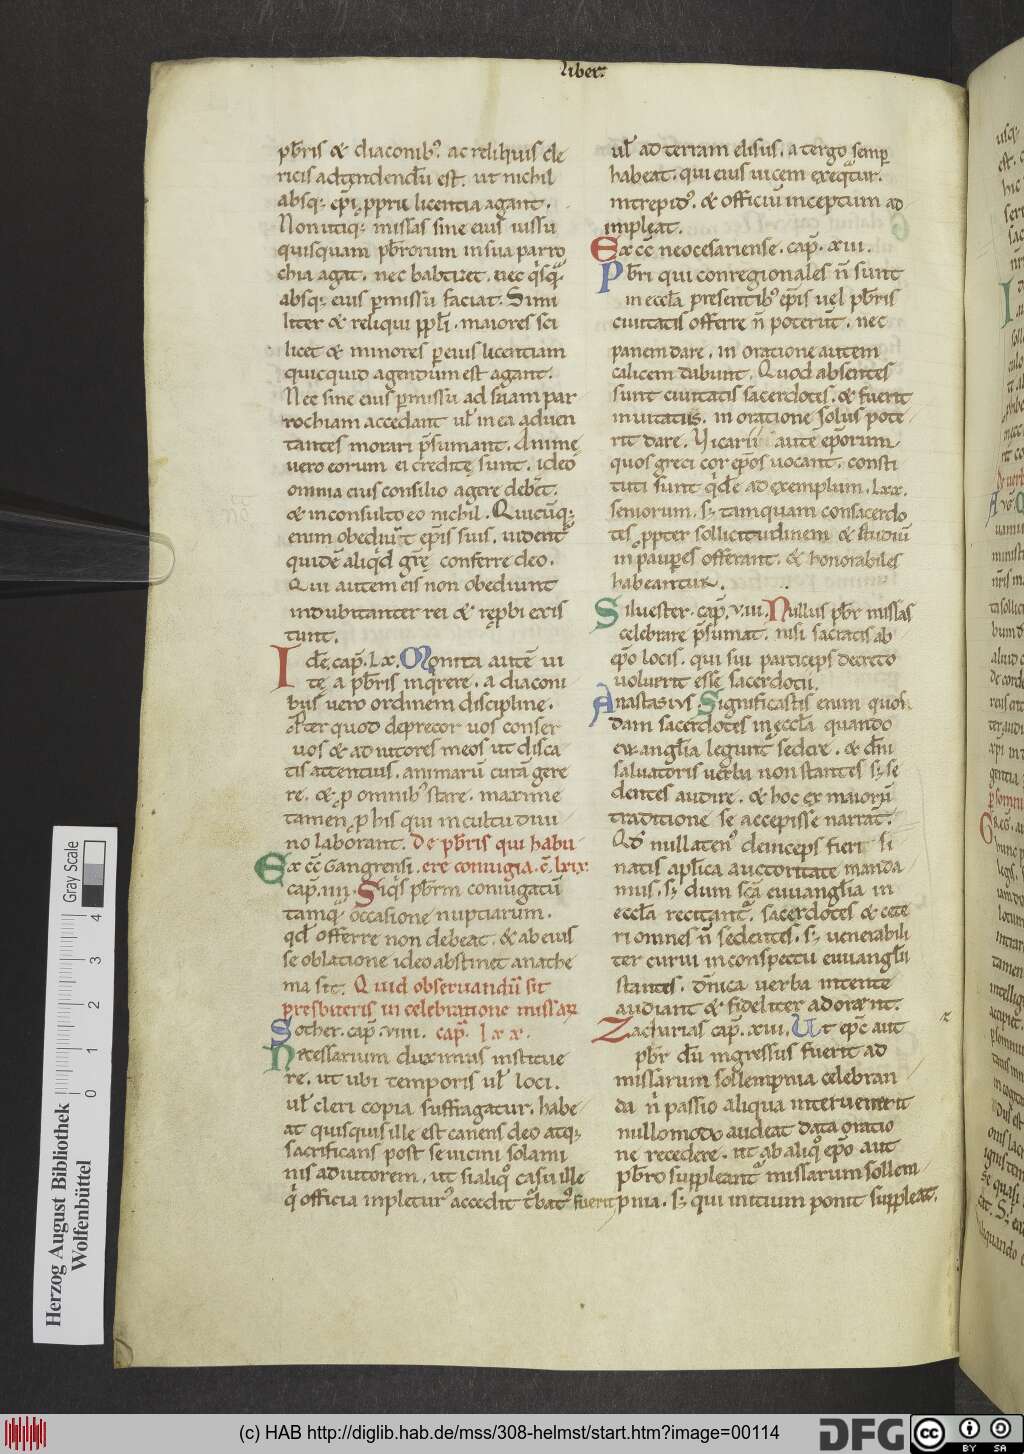 liber
pb̄ris & diaconib᷒. ac reliquis cle
ricis adtendendū est. ut nichil
absq; ep̄i pprii licentia agant.
Non utiq; missas sine eius iussu
quisquam pb̄rorum in sua parro
chia agat. nec babtizet. nec q̄sq̄
absq; eius pmissu faciat. Simi
liter & reliqui pp̄li. maiores sci
licet & minores p eius licentiam
quicquid agendum est agant.
Nec sine eius pmissu ad suam par
rochiam accedant ul̄ in ea aduen
tantes morari p̄sumant. Animę
uero eorum ei creditę sunt. ideo
omnia eius consilio agere deb&.
& inconsulto eo nichil. Quicūq;
enim obediunt ep̄is suis. uident᷑
quidē aliqd̄ grē conferre deo.
Qui autem eis non obediunt
indubitanter rei & rępbi exis
tunt.
Idē cap̄. lx. Monita autē ui
te a pb̄ris inq̄rere. a diaconi
bus uero ordinem discipline.
Pręter quod deprecor uos conser
uos & adiutores meos ut disca
tis attentius. animarū curā gere
re. & p omnib᷒ stare. maxime
tamen p his qui in cultu diui
no laborant. De pb̄ris qui habu
Ex cc̄ Gangrensi. ere coniugia. c̄. lxix.
cap̄. iiii. Siq̄s pb̄rm coniugatū
tamq̄ occasione nuptiarum.
qd̄ offerre non debeat. & ab eius
se oblatione ideo abstinet anathe
ma sit. Quid obseruandū sit
presbiteris in celebratione missarꝝ
Sother. cap̄. viiii. cap̄. lxx.
Necessarium duximus instituе
re. ut ubi temporis ul̄ loci.
ul̄ cleri copia suffragatur. habe
at quisquis ille est canens deo atq;
sacrificans post se uicini solami
nis adiutorem. ut si aliq̊ casu ille
q̄ officia impletur᷒ accedit t̄bat᷒ fuerit
ul̄ ad terram elisus. a tergo semp
habeat. qui eius uicem exequat᷑.
intrepid᷒. & officiū inceptum ad
impleat.
Ex cc̄ neocesariense. cap̄. xiii.
Pb̄ri qui conregionales n̄ sunt
in eccl̄a presentib᷒ ep̄is uel pb̄ris
ciuitatis offerre n̄ poterūt. nec
panem dare. in oratione autem
calicem dabunt. Quod absentes
sunt ciuitatis sacerdotes. & fuerit
inuitatus. in oratione solus pote
rit dare. Vicarii autē ep̄orum
quos greci corep̄os uocant. consti
tuti sunt q̄dē ad exemplum. lxx.
seniorum. s; tamquam consacerdo
tes ppter sollicitudinem & studiū
in paupes offerant. & honorabiles
habeantur.
Siluester. cap̄. viii. Nullus pb̄r missas
celebrare p̄sumat. nisi sacratis ab
ep̄o locis. qui sui particeps decreto
uoluerit esse sacerdotii.
Anastasius. Significastis enim quos
dam sacerdotes in eccl̄a quando
euuanglia legunt᷑ sedere. & dn̄i
saluatoris uerba non stantes s; se
dentes audire. & hoc ex maiorū
traditione se accepisse narrat᷑.
Qd̄ nullaten᷒ deinceps fieri si
natis apl̄ica auctoritate manda
mus. s; dum scā euuanglia in
eccl̄a recitant᷑. sacerdotes & cete
ri omnes n̄ sedentes. s; uenerabili
ter curui in conspectu euuanglii
stantes. dn̄ica uerba intente
audiant & fideliter adorent.
Zacharias cap̄. xiii. Ut ep̄c aut
pb̄r dū ingressus fuerit ad
missarum sollempnia celebran
da n̄ passio aliqua interuenerit
nullomodo audeat data oratio
ne recedere. ut ab aliq̊ ep̄o aut
pb̄ro suppleant᷑ missarum sollem
pnia. s; qui initium ponit suppleat.
Gray Scale
0 1 2 3 4
Herzog August Bibliothek
Wolfenbüttel
(c) HAB http://diglib.hab.de/mss/308-helmst/start.htm?image=00114
DFG
cc
BY SA